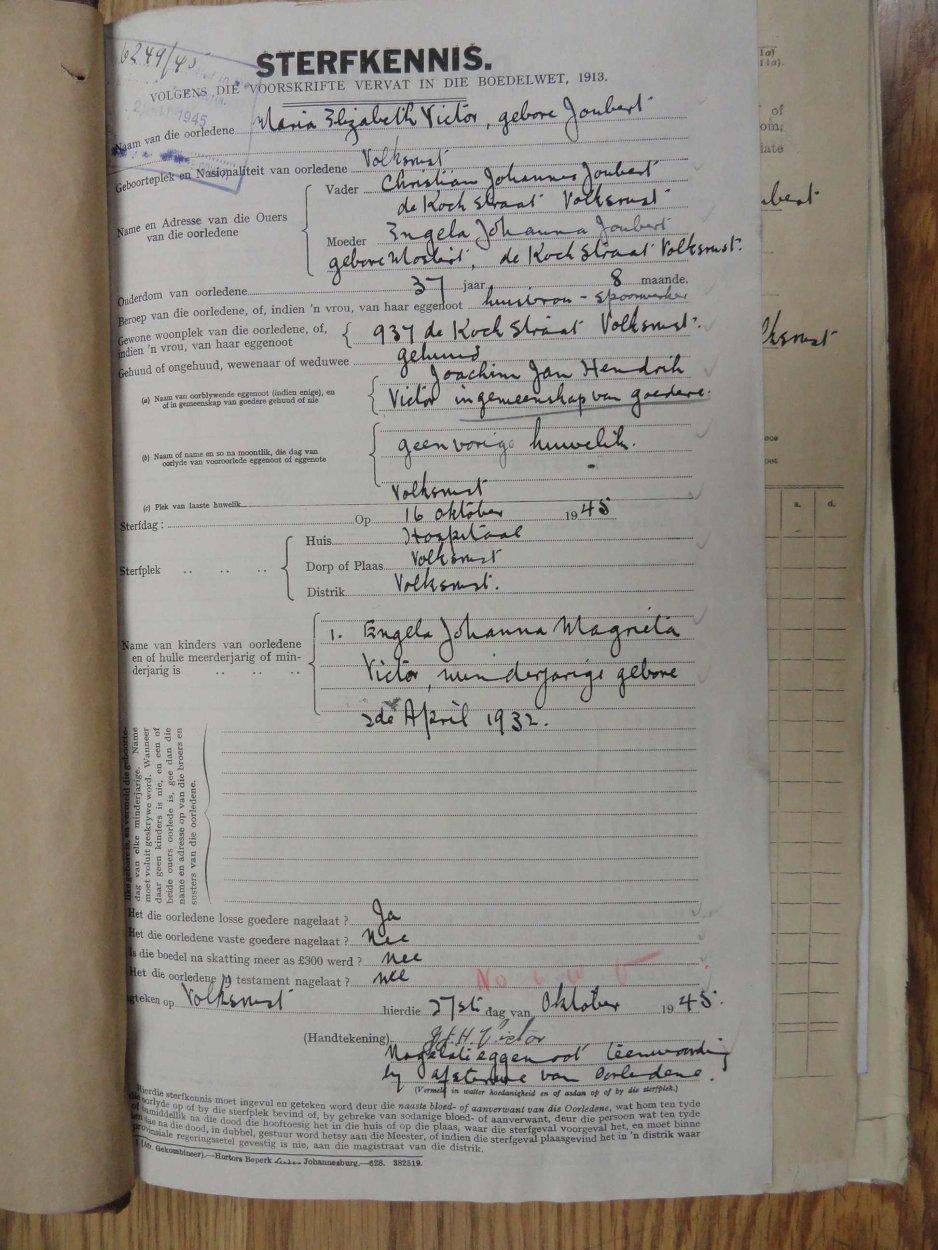 6249/45
STERFKENNIS.
VOLGENS DIE VOORSKRIFTE VERVAT IN DIE BOEDELWET, 1913.
1945
Naam van die oorledene Maria Elizabeth Victor, gebore Joubert
Geboorteplek en Nasionaliteit van oorledene Volksrust
Name en Adresse van die Ouers van die oorledene
Vader Christian Johannes Joubert
de Koch Straat Volksrust
Moeder Engela Johanna Joubert
gebore Mostert, de Koch Straat Volksrust.
Ouderdom van oorledene 37 jaar 8 maande.
Beroep van die oorledene, of, indien 'n vrou, van haar eggenoot huisvrou - spoorwerker
Gewone woonplek van die oorledene, of,
indien 'n vrou, van haar eggenoot
937 de Koch Straat Volksrust.
Gehuud of ongehuud, wewenaar of weduwee gehuud
(a) Naam van oorblywende eggenoot (indien enige), en
of in gemeenskap van goedere gehuud of nie
Joachim Jan Hendrik
Victor in gemeenskap van goedere.
(b) Naam of name en so na moontlik, die dag van
oorlyde van vooroorlede eggenoot of eggenote
geen vorige huwelik.
(c) Plek van laaste huwelik Volksrust
Sterfdag : Op 16 Oktober 1945
Sterfplek .. .. ..
Huis Hospitaal
Dorp of Plaas Volksrust
Distrik Volksrust.
Name van kinders van oorledene
en of hulle meerderjarig of min-
derjarig is .. .. ..
1. Engela Johanna Magrieta
Victor, minderjarige gebore
2de April 1932.
dag van elke minderjarige. Name
moet voluit geskrywe word. Wanneer
daar geen kinders is nie, en een of
beide ouers oorlede is, gee dan die
name en adresse op van die broers en
susters van die oorledene.
Het die oorledene losse goedere nagelaat ? Ja
Het die oorledene vaste goedere nagelaat ? Nee
Is die boedel na skatting meer as £300 werd ? nee
Het die oorledene 'n testament nagelaat ? nee
Geteken op Volksrust hierdie 27ste dag van Oktober 1945.
(Handtekening) J.J.H. Victor
Nagelate eggenoot teenwoordig
by afsterwe van Oorledene.
(Vermeld in watter hoedanigheid en of asdan op of by die sterfplek.)
Hierdie sterfkennis moet ingevul en geteken word deur die naaste bloed- of aanverwant van die Oorledene, wat hom ten tyde
oorlyde op of by die sterfplek bevind of, by gebreke van sodanige bloed- of aanverwant, deur die persoon wat ten tyde
onmiddellik na die dood die hooftoesig het in die huis of op die plaas, waar die sterfgeval voorgeval het, en moet binne
dae na die dood, in dubbel, gestuur word hetsy aan die Meester, of indien die sterfgeval plaasgevind het in 'n distrik waar
provinsiale regeringsetel gevestig is nie, aan die magistraat van die distrik.
Gekombineer).—Hortors Beperk Johannesburg.—628. 382519.